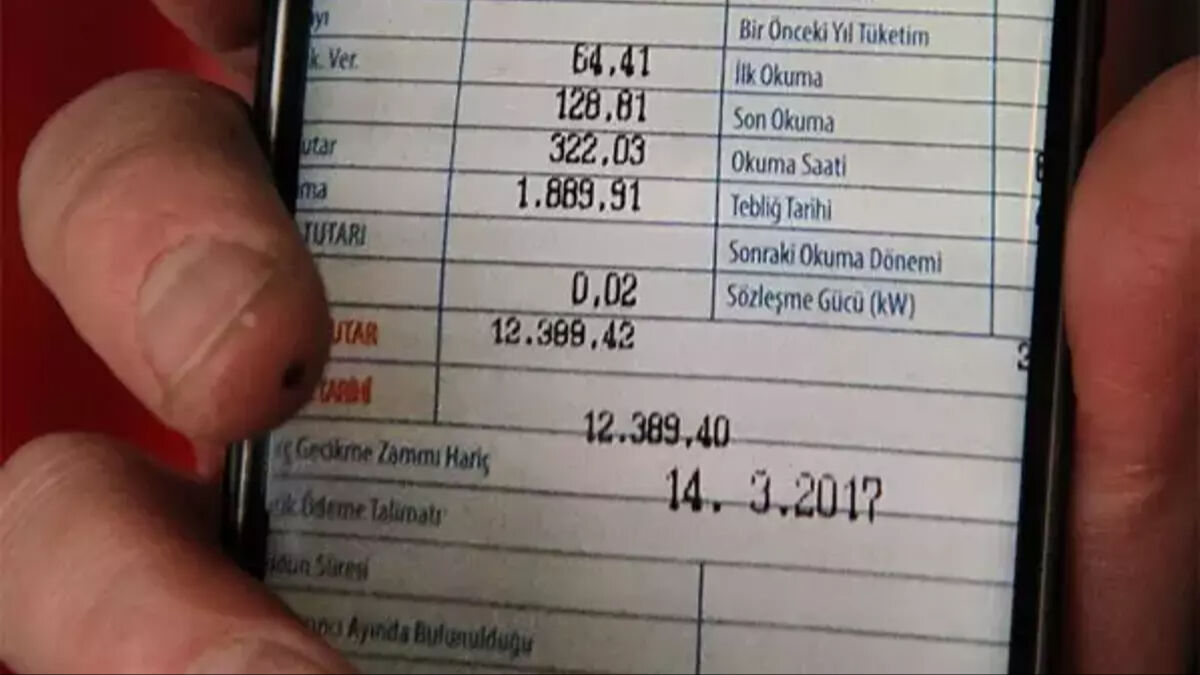 ayı
Bir Önceki Yıl Tüketim
k. Ver. 64,41 İlk Okuma
128,81 Son Okuma
utar 322,03 Okuma Saati
ma 1.889,91 Tebliğ Tarihi
TUTARI Sonraki Okuma Dönemi
0,02 Sözleşme Gücü (kW)
UTAR 12.389,42
3
TARİHİ 12.389,40
ç Gecikme Zammı Hariç 14. 3.2017
ik Ödeme Talimatı
Süresi
ncı Ayında Bulunulduğu